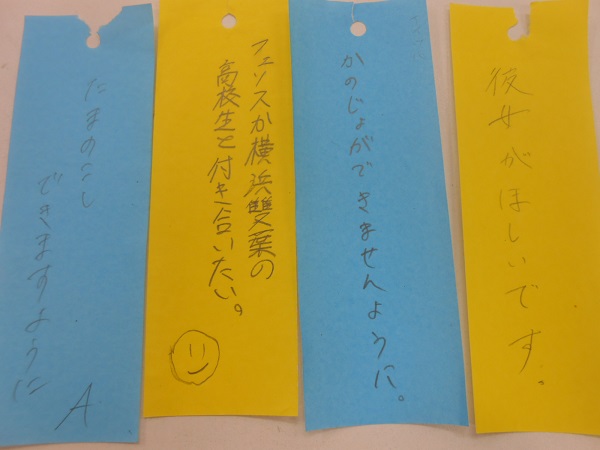 たまのこし
できますように
A
フェリスか横浜雙葉の
高校生と付き合いたい。
かのじょができませんように。
彼女がほしいです。